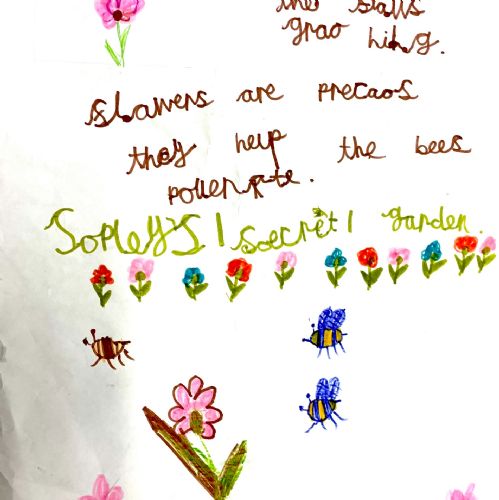 the stalls
grao hihg.
slawers are precaos
they help the bees
pollenate.
Sopley's secret garden.